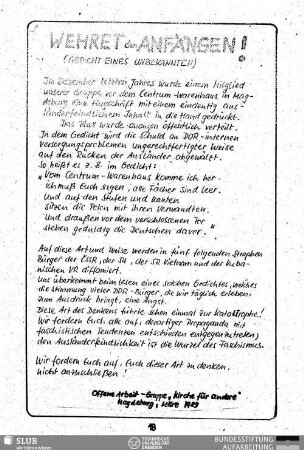 WEHRET den ANFÄNGEN!
(GEDICHT EINES UNBEKANNTEN)
Im Dezember letzten Jahres wurde einem Mitglied
unserer Gruppe vor dem Centrum-Warenhaus in Mag-
deburg eine Flugschrift mit einem eindeutig aus-
länderfeindlichem Inhalt in die Hand gedrückt.
Das Blatt wurde anonym öffentlich verteilt.
In dem Gedicht wird die Schuld an DDR-internen
Versorgungsproblemen ungerechtfertigter Weise
auf den Rücken der Ausländer abgewälzt.
So heißt es z.B. im Gedicht:
"Vom Centrum-Warenhaus komme ich her.
Ich muß Euch sagen, alle Fächer sind leer.
Und auf den Stufen und Kanten
sitzen die Polen mit ihren Verwandten.
Und draußen vor dem verschlossenen Tor
stehen geduldig die Deutschen davor."
Auf diese Art und Weise werden in fünf folgenden Strophen
Bürger der ČSSR, der SU, der SR Vietnam und der kuba-
nischen VR diffamiert.
Uns überkommt beim Lesen eines solchen Gedichtes, welches
die Stimmung vieler DDR-Bürger, die wir täglich erleben,
zum Ausdruck bringt, eine Angst.
Diese Art des Denkens führte schon einmal zur Katastrophe!
Wir fordern Euch alle auf, derartiger Propaganda mit
faschistischen Tendenzen entschieden entgegenzutreten,
denn Ausländerfeindlichkeit ist die Wurzel des Faschismus.
Wir fordern Euch auf, Euch dieser Art zu denken,
nicht anzuschließen!
Offene Arbeit-Gruppe "Kirche für andere"
Magdeburg, März 1989
18
SLUB
Wir führen Wissen.
TECHNISCHE
UNIVERSITÄT
DRESDEN
BUNDESSTIFTUNG
AUFARBEITUNG